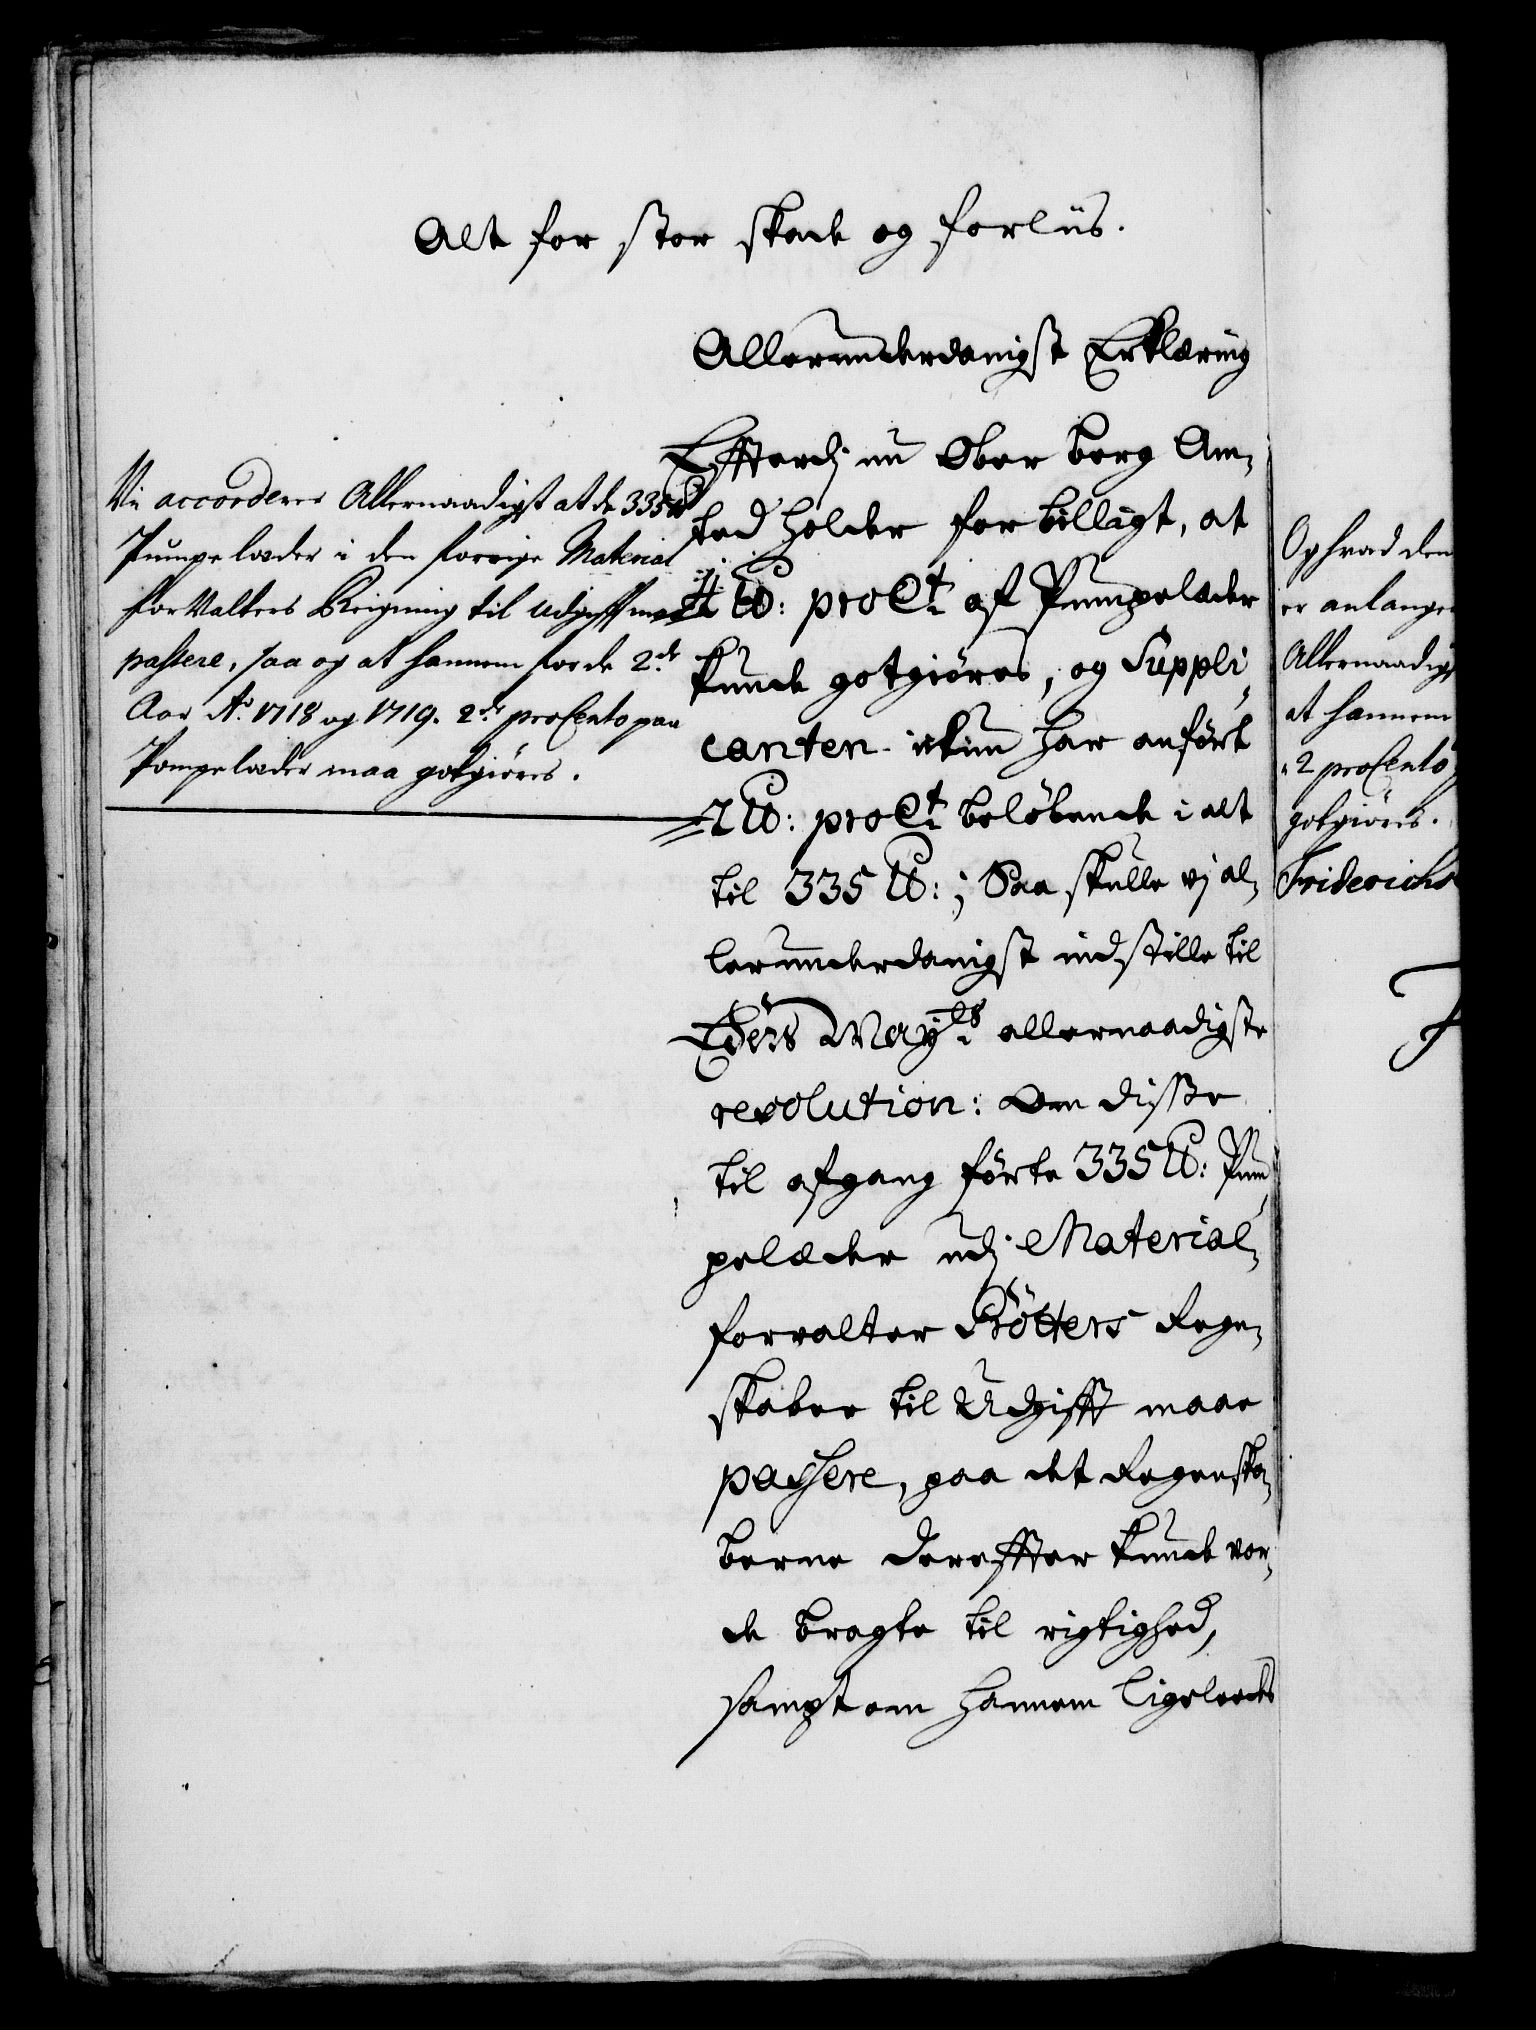 Alt for stor skade og forliis.
Allerunderdanigst Erklæring
Effterdj nu Ober Berg Am-
ted holder for billigt, at
4 ℔: pro Ct. af Pumpelæder
kunde gotgiøres, og Suppli-
canten ikun har anført
2 ℔: pro Ct. beløbende i alt
til 335 ℔:; Saa skulle vj al-
lerunderdanigst indstille til
Eders May:ts allernaadigste
resolution: Om disse
til afgang førte 335 ℔: Pum-
pelæder udj Material-
forvalter Rötters Regn-
skaber til Udgifft maae
passere, paa det Regnska-
berne dereffter kunde vor-
de bragte til rigtighed,
sampt om hannem ligeleeds
Vii accorderer Allernaadigst at de 335 ℔
Pumpelæder i den forrige Material
forValters Reigning til udgifft maa
passere, saa og at hannem for de 2de
Aar Ao. 1718 og 1719. 2de proCento paa
Pompelæder maa gotgiøres.
Og hvad den
er anlange
Allernaadigst
at hannem
2 proCento
gotgiøres.
Friderichs